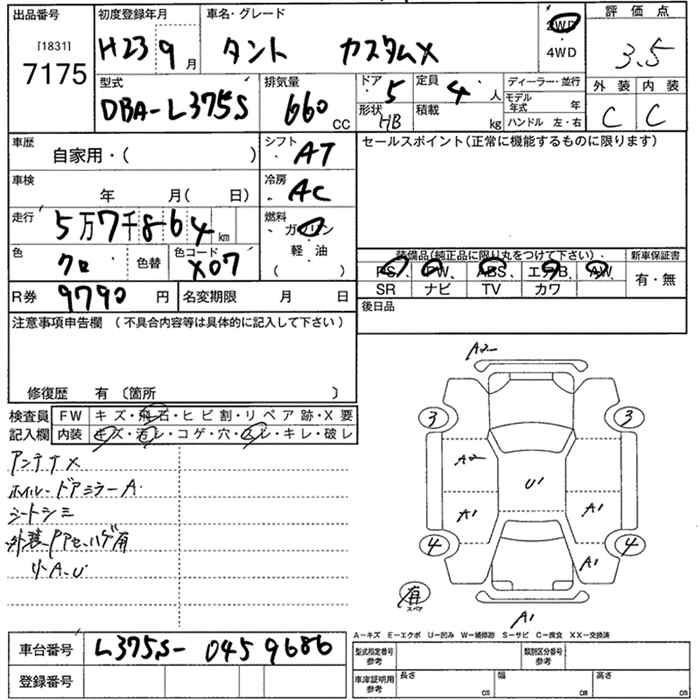 出品番号 初度登録年月 車名・グレード 2WD 評価点
[1831] H23 9月 タント カスタムX 4WD 3.5
7175
型式 排気量 ドア 定員 ディーラー・並行 外装 内装
DBA-L375S 660 CC 5 4人 モデル年式 年 C C
形状 HB 積載 kg ハンドル 左・右
車歴 自家用・( ) シフト AT セールスポイント(正常に機能するものに限ります)
車検 年 月( 日) 冷房 AC
走行 5万7千864km 燃料 ガソリン
軽油
( )
色 クロ 色替 色コード X07
装備品(純正品に限り丸をつけて下さい) 新車保証書
PS、 PW、 ABS、 エアB、 AW、 有・無
SR ナビ TV カワ
R券 9790円 名変期限 月 日 後日品
注意事項申告欄 (不具合内容等は具体的に記入して下さい)
修復歴 有 〔箇所 〕
検査員 FW キズ・飛石・ヒビ割・リペア跡・X要
記入欄 内装 キズ・汚レ・コゲ・穴・スレ・キレ・破レ
アンテナX
ホイル・ドアミラーA
シートシミ
小A.U
A2
3 3
A2
U1
A1 A1
4 4
A1
有 スペア
A1
A-キズ E-エクボ U-凹み W-補修跡 S-サビ C-腐食 XX-交換済
車台番号 L375S-0459686
型式指定番号 参考 類別区分番号 参考
登録番号
車庫証明用 参考 長さ cm 幅 cm 高さ cm